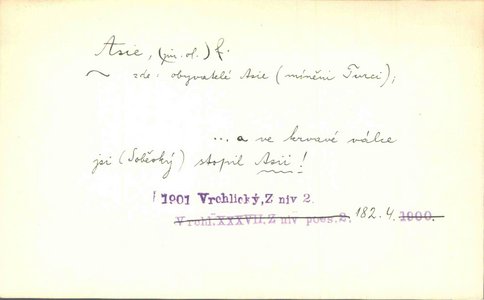 Asie, (jm. ol.) f.
~ zde: obyvatelé Asie (míněni Turci);
... a ve krvavé válce
jsi (Soběský) stopil Asii!
1901 Vrchlický, Z niv 2.
Vrchl. XXXVII, Z niv poes. 2. 182. 4. 1900.